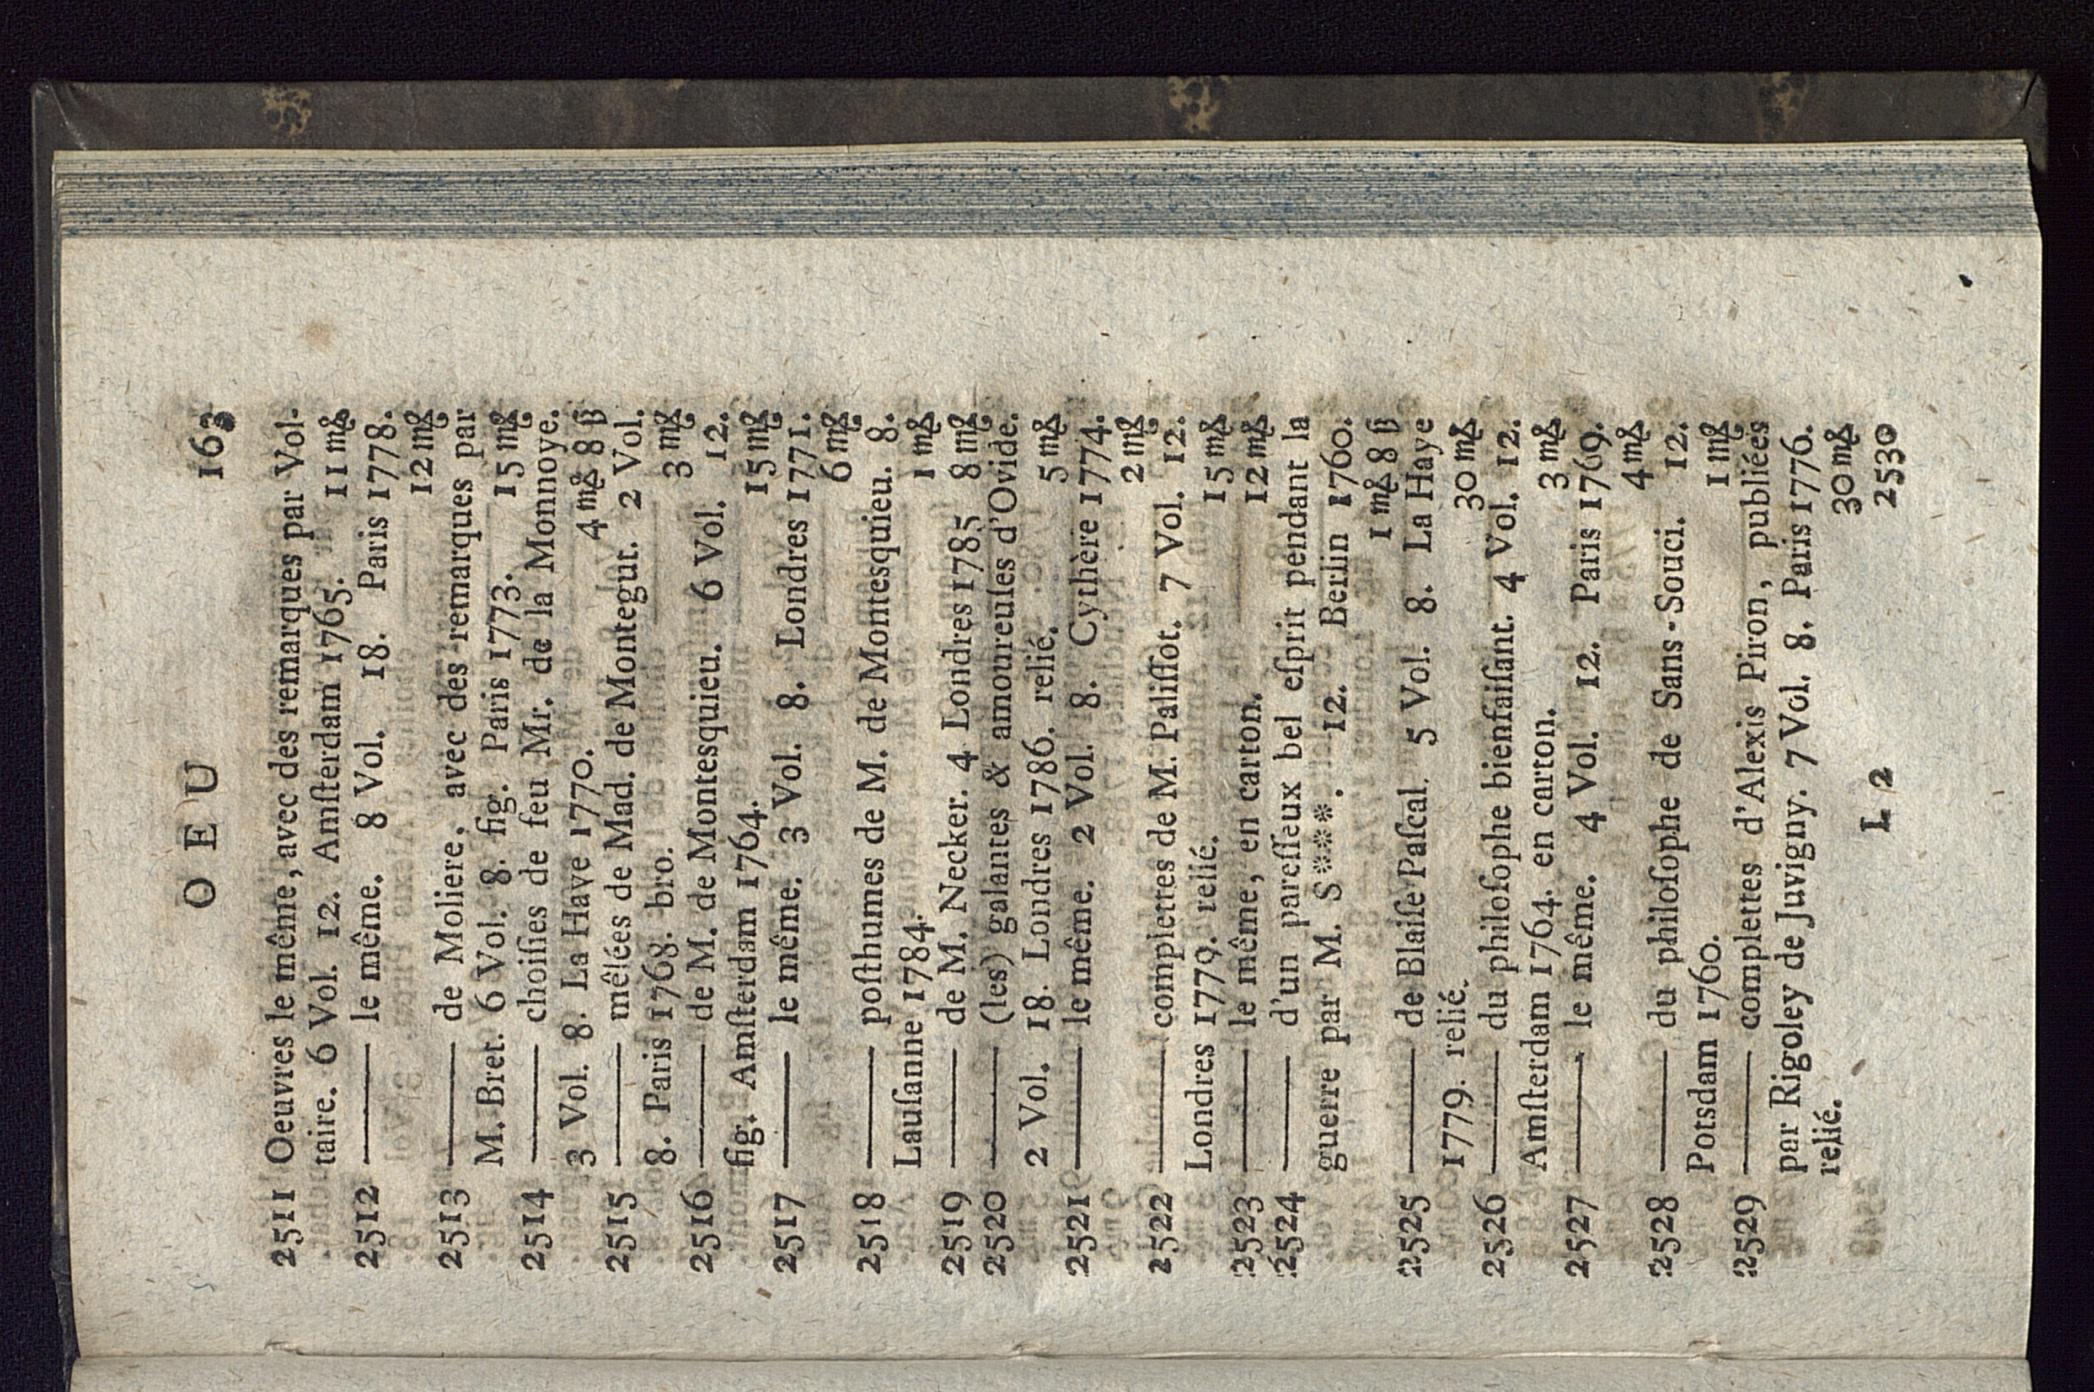 O E U 163
2511 Oeuvres le même, avec des remarques par Vol-
taire. 6 Vol. 12. Amſterdam 1765. 11 m&
2512 —— le même. 8 Vol. 18. Paris 1778.
12 m&
2513 —— de Moliere, avec des remarques par
M. Bret. 6 Vol. 8. fig. Paris 1773. 15 m&
2514 —— choiſies de feu Mr. de la Monnoye.
3 Vol. 8. La Haye 1770. 4 m& 8 ß
2515 —— mêlées de Mad. de Montegut. 2 Vol.
8. Paris 1768. bro. 3 m&
2516 —— de M. de Montesquieu. 6 Vol. 12.
fig. Amſterdam 1764. 15 m&
2517 —— le même. 3 Vol. 8. Londres 1771.
6 m&
2518 —— poſthumes de M. de Montesquieu. 8.
Lauſanne 1784. 1 m&
2519 —— de M. Necker. 4 Londres 1785 8 m&
2520 —— (les) galantes & amoureuſes d'Ovide.
2 Vol. 18. Londres 1786. relié. 5 m&
2521 —— le même. 2 Vol. 8. Cythère 1774.
2 m&
2522 —— complettes de M. Paliſſot. 7 Vol. 12.
Londres 1779. relié. 15 m&
2523 —— le même, en carton. 12 m&
2524 —— d'un pareſſeux bel eſprit pendant la
guerre par M. S***. 12. Berlin 1760.
1 m& 8 ß
2525 —— de Blaiſe Paſcal. 5 Vol. 8. La Haye
1779. relié. 30 m&
2526 —— du philoſophe bienfaiſant. 4 Vol. 12.
Amſterdam 1764. en carton. 3 m&
2527 —— le même. 4 Vol. 12. Paris 1769.
4 m&
2528 —— du philoſophe de Sans-Souci. 12.
Potsdam 1760. 1 m&
2529 —— complettes d'Alexis Piron, publiées
par Rigoley de Juvigny. 7 Vol. 8. Paris 1776.
relié. 30 m&
L 2 2530